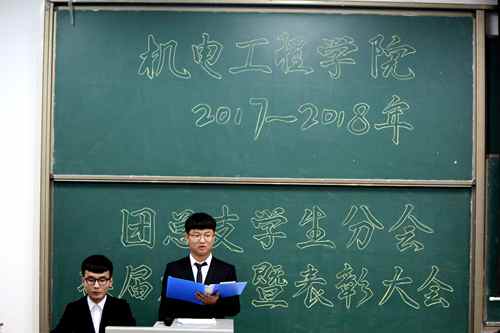 机电工程学院
2017~2018年
团总支学生分会
届暨表彰大会